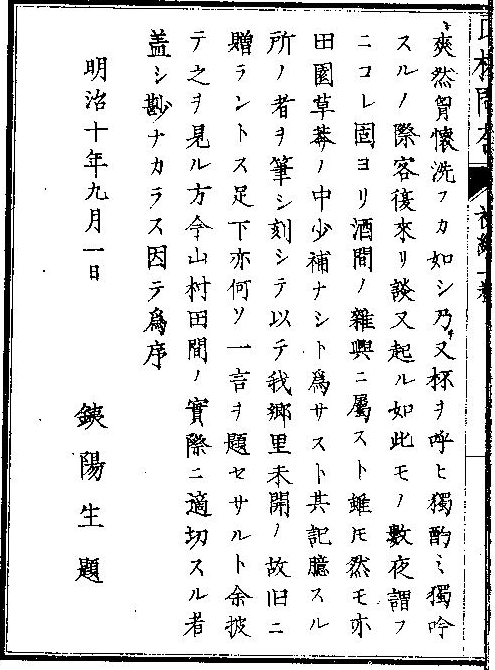 爽然胷懷洗フカ如シ乃又杯ヲ呼ヒ獨酌シ獨吟
スルノ際客復來リ談又起ル如此モノ數夜謂フ
ニコレ固ヨリ酒間ノ雜興ニ屬スト雖モ然モ亦
田園草莽ノ中少補ナシト爲サスト其記臆スル
所ノ者ヲ筆シ刻シテ以テ我鄉里未開ノ故旧ニ
贈ラントス足下亦何ソ一言ヲ題セサルト余披
テ之ヲ見ル方今山村田間ノ實際ニ適切スル者
蓋シ尠ナカラス因テ爲序
明治十年九月一日
銕陽生題